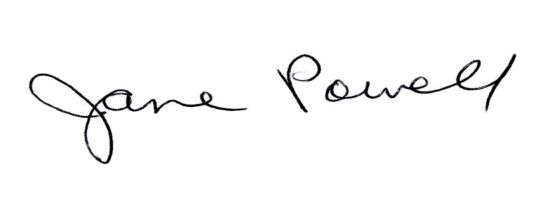 Jane Powell